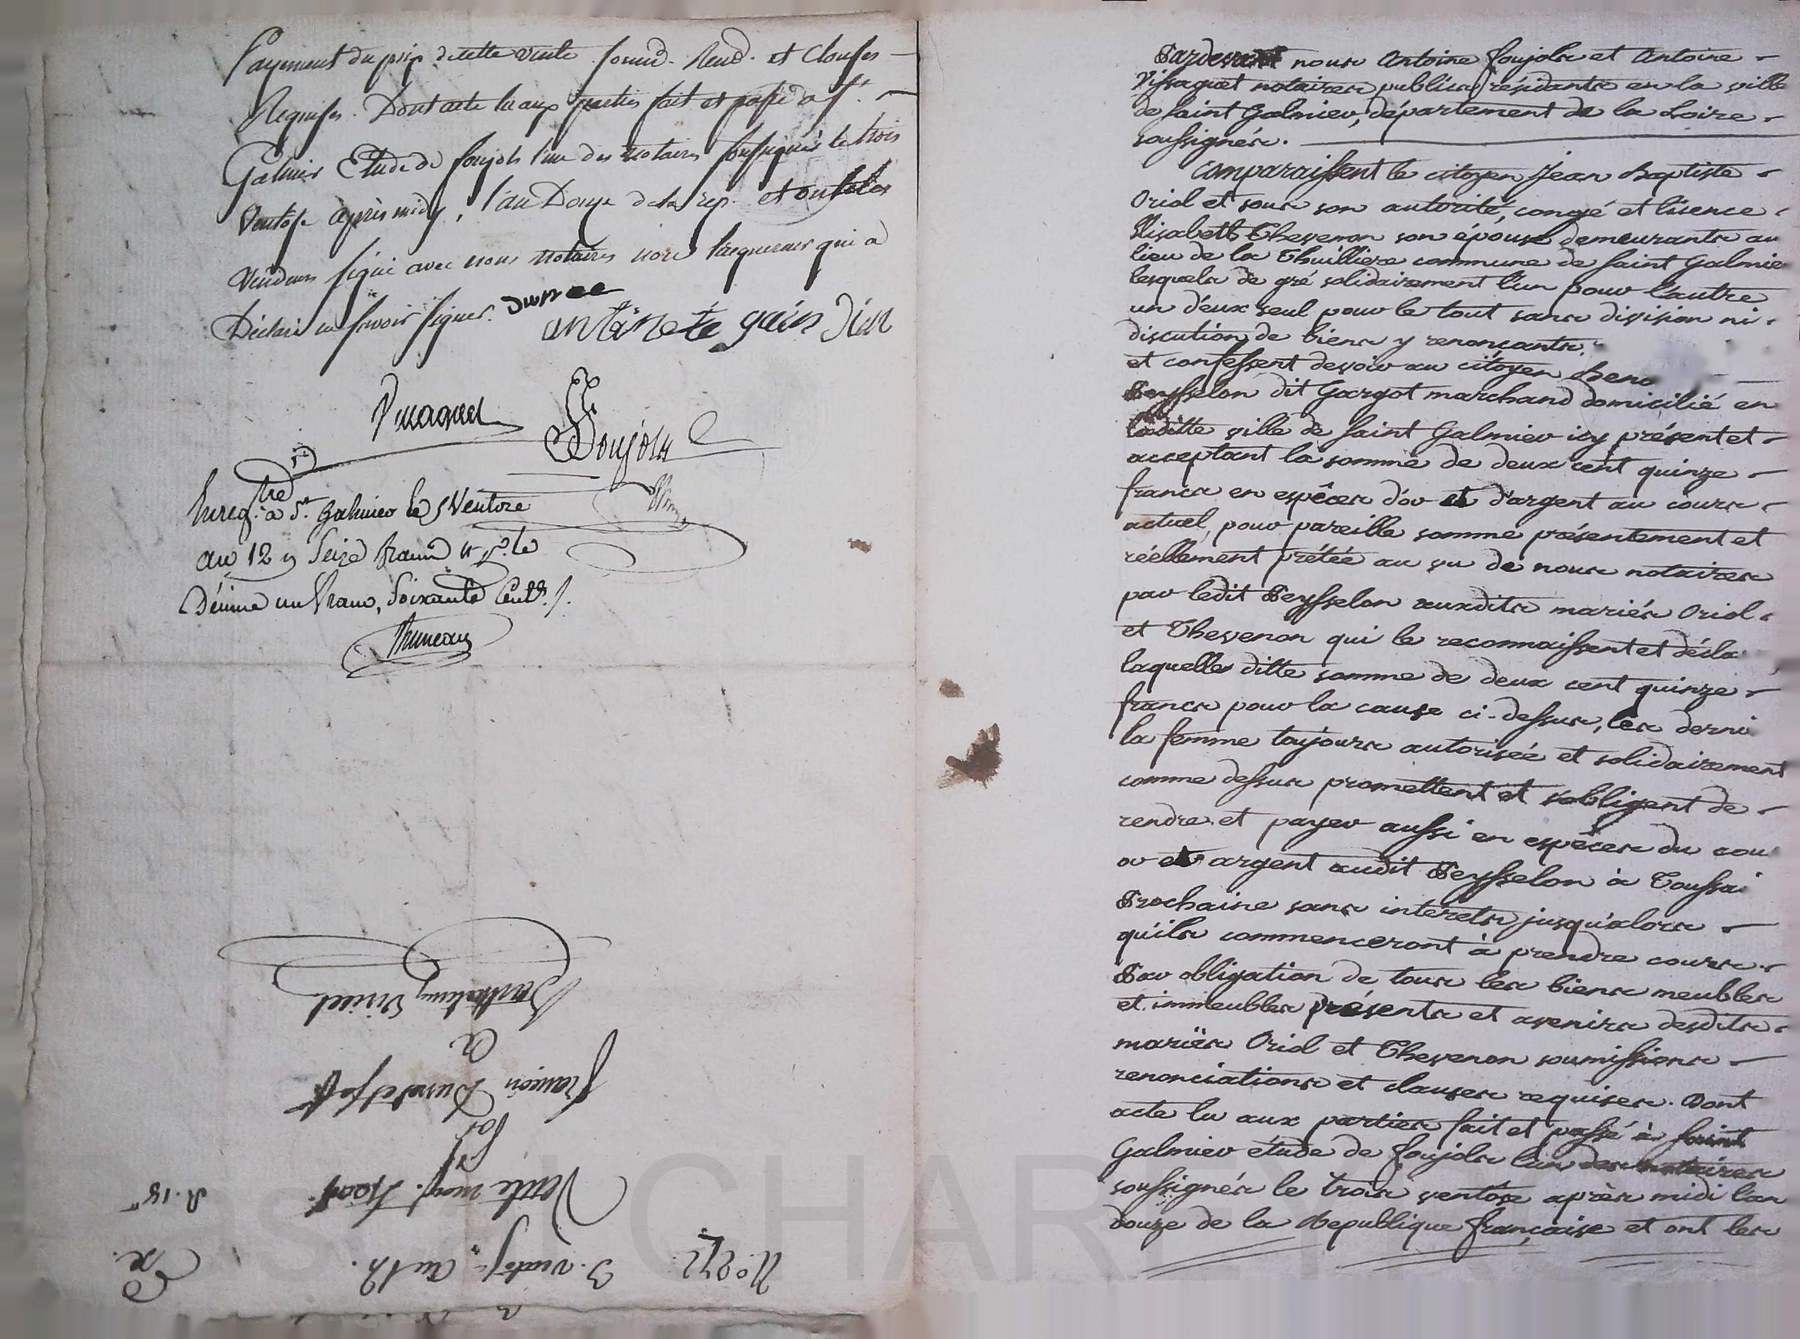 Payement du prix de cette vente. soumis. Rend. et Clauses
Requises. Dont acte lu aux parties fait et passé a St.
Galmier Etude de foujols l'un des notaires soussignés le trois
Ventose après midy, l'an Douze de la rep. et ont les
Vendeurs signé avec nous notaires non l'acquereur qui a
Déclaré ne savoir signer.
antoinete
foujols
Enregtré à St. galmier le 5 Ventose
an 12 Seize francs
Décime un franc, Soixante Centes.
Bruneau
N° 272
3. ventose an 12.
Vente moy. 1400f.
par
françois Durand
a
Barthelemy
R. 15
Pardevant nous Antoine foujols et Antoine
Vissaguet notaires publics résidants en la ville
de saint Galmier, département de la Loire
soussignés.
Comparaissent le citoyen Jean Baptiste
Oriol et sous son autorité, congé et licence
Elisabeth Thevenon son épouse demeurants au
lieu de la Thuilliere commune de saint Galmie
lesquels de gré solidairement l'un pour l'autre
un d'eux seul pour le tout sans division ni
discution de biens y renonçants
et confessent devoir au citoyen Beno
Peysselon dit Gargot marchand domicilié en
laditte ville de saint Galmier icy présent et
acceptant la somme de deux cent quinze
francs en espêces d'or et d'argent au cours
actuel, pour pareille somme présentement et
réellement prétée au vu de nous notaires
par ledit Peysselon auxdits mariés Oriol
et Thevenon qui le reconnaissent et décla
laquelle ditte somme de deux cent quinze
francs pour la cause ci-dessus, les derni
la femme toujours autorisée et solidairement
comme dessus promettent et s'obligent de
rendre et payer aussi en espêces du cou
or et argent audit Peysselon à Toussai
Prochaine sans intérets jusqu'alors
qu'ils commenceront à prendre cours.
Par obligation de tous les biens meubles
et immeubles présents et avenirs desdits
mariës Oriol et Thevenon soumissions
renonciations et clauses requises. Dont
acte lu aux parties fait et passé à saint
Galmier étude de foujols l'un des notaires
soussignés le trois ventôse après midi l'an
douze de la Republique française et ont les